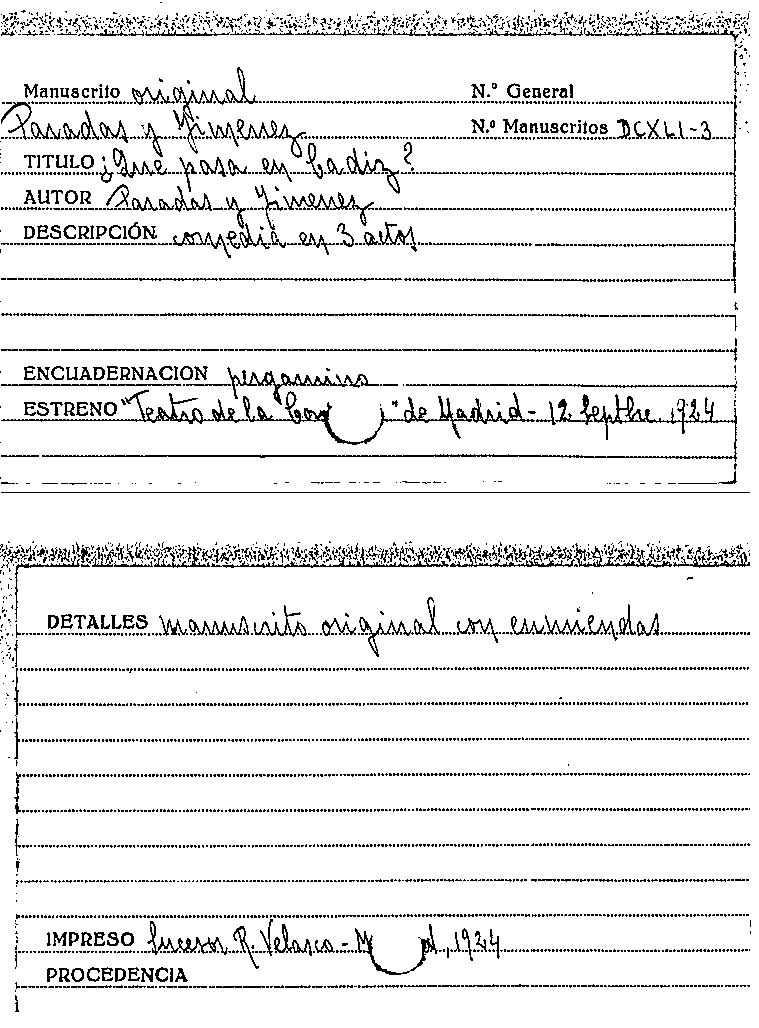 Manuscrito original
N.º General
Paradas y Jimenez
N.º Manuscritos DCXLI-3
TITULO ¿Qué pasa en Cadiz?
AUTOR Paradas y Jimenez
DESCRIPCIÓN comedia en 3 actos
ENCUADERNACION pergamino
ESTRENO "Teatro de la" de Madrid - 12 Septbre. 1924
DETALLES manuscrito original con enmiendas
IMPRESO Sucesor R. Velasco - 1924
PROCEDENCIA